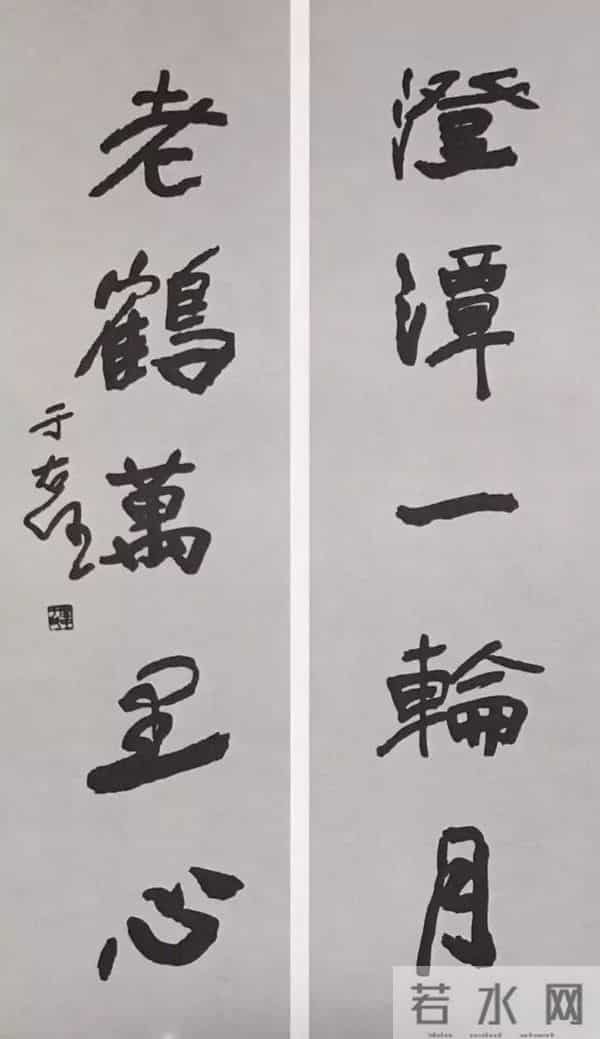 澄潭一輪月
老鶴萬里心
于右任
若水网